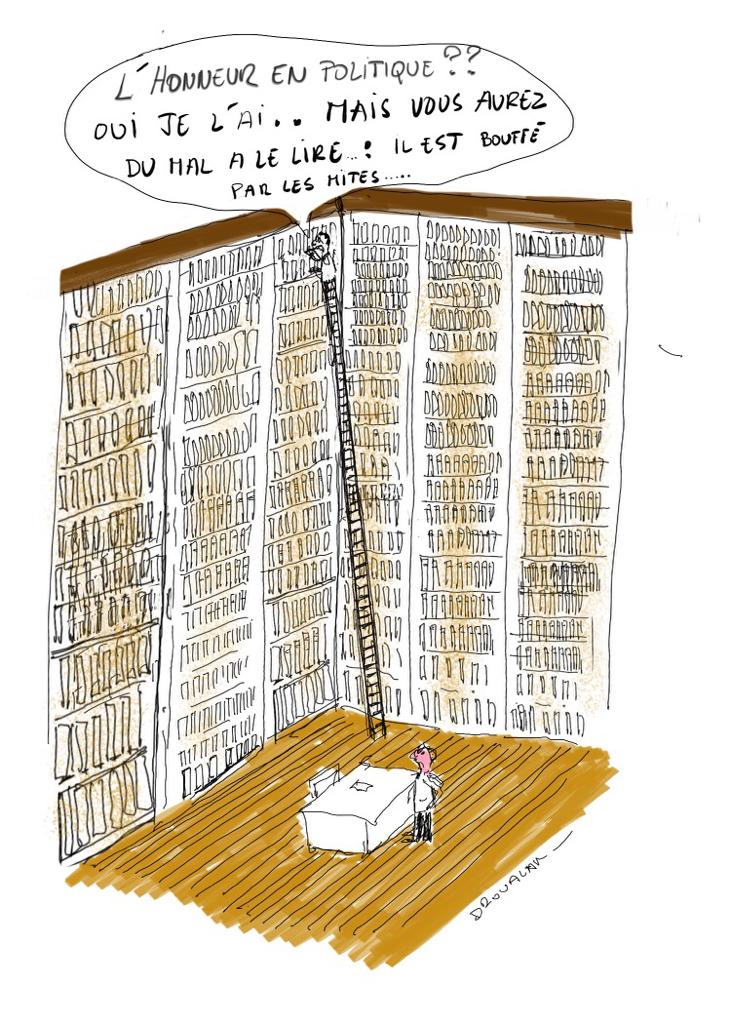 L'HONNEUR EN POLITIQUE ??
OUI JE L'AI.. MAIS VOUS AUREZ
DU MAL A LE LIRE...: IL EST BOUFFÉ
PAR LES MITES.....
DROUALAN